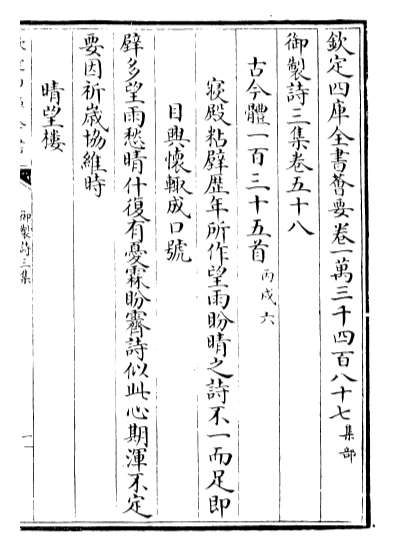 欽定四庫全書薈要卷一萬三千四百八十七集部
御製詩三集卷五十八
古今體一百三十五首丙戌六
寝殿粘壁歴年所作望雨盼晴之詩不一而足即
目興懷輙成口號
壁多望雨愁晴什復有憂霖盼霽詩似此心期渾不定
要因祈嵗協維時
晴望樓
御製詩三集
一